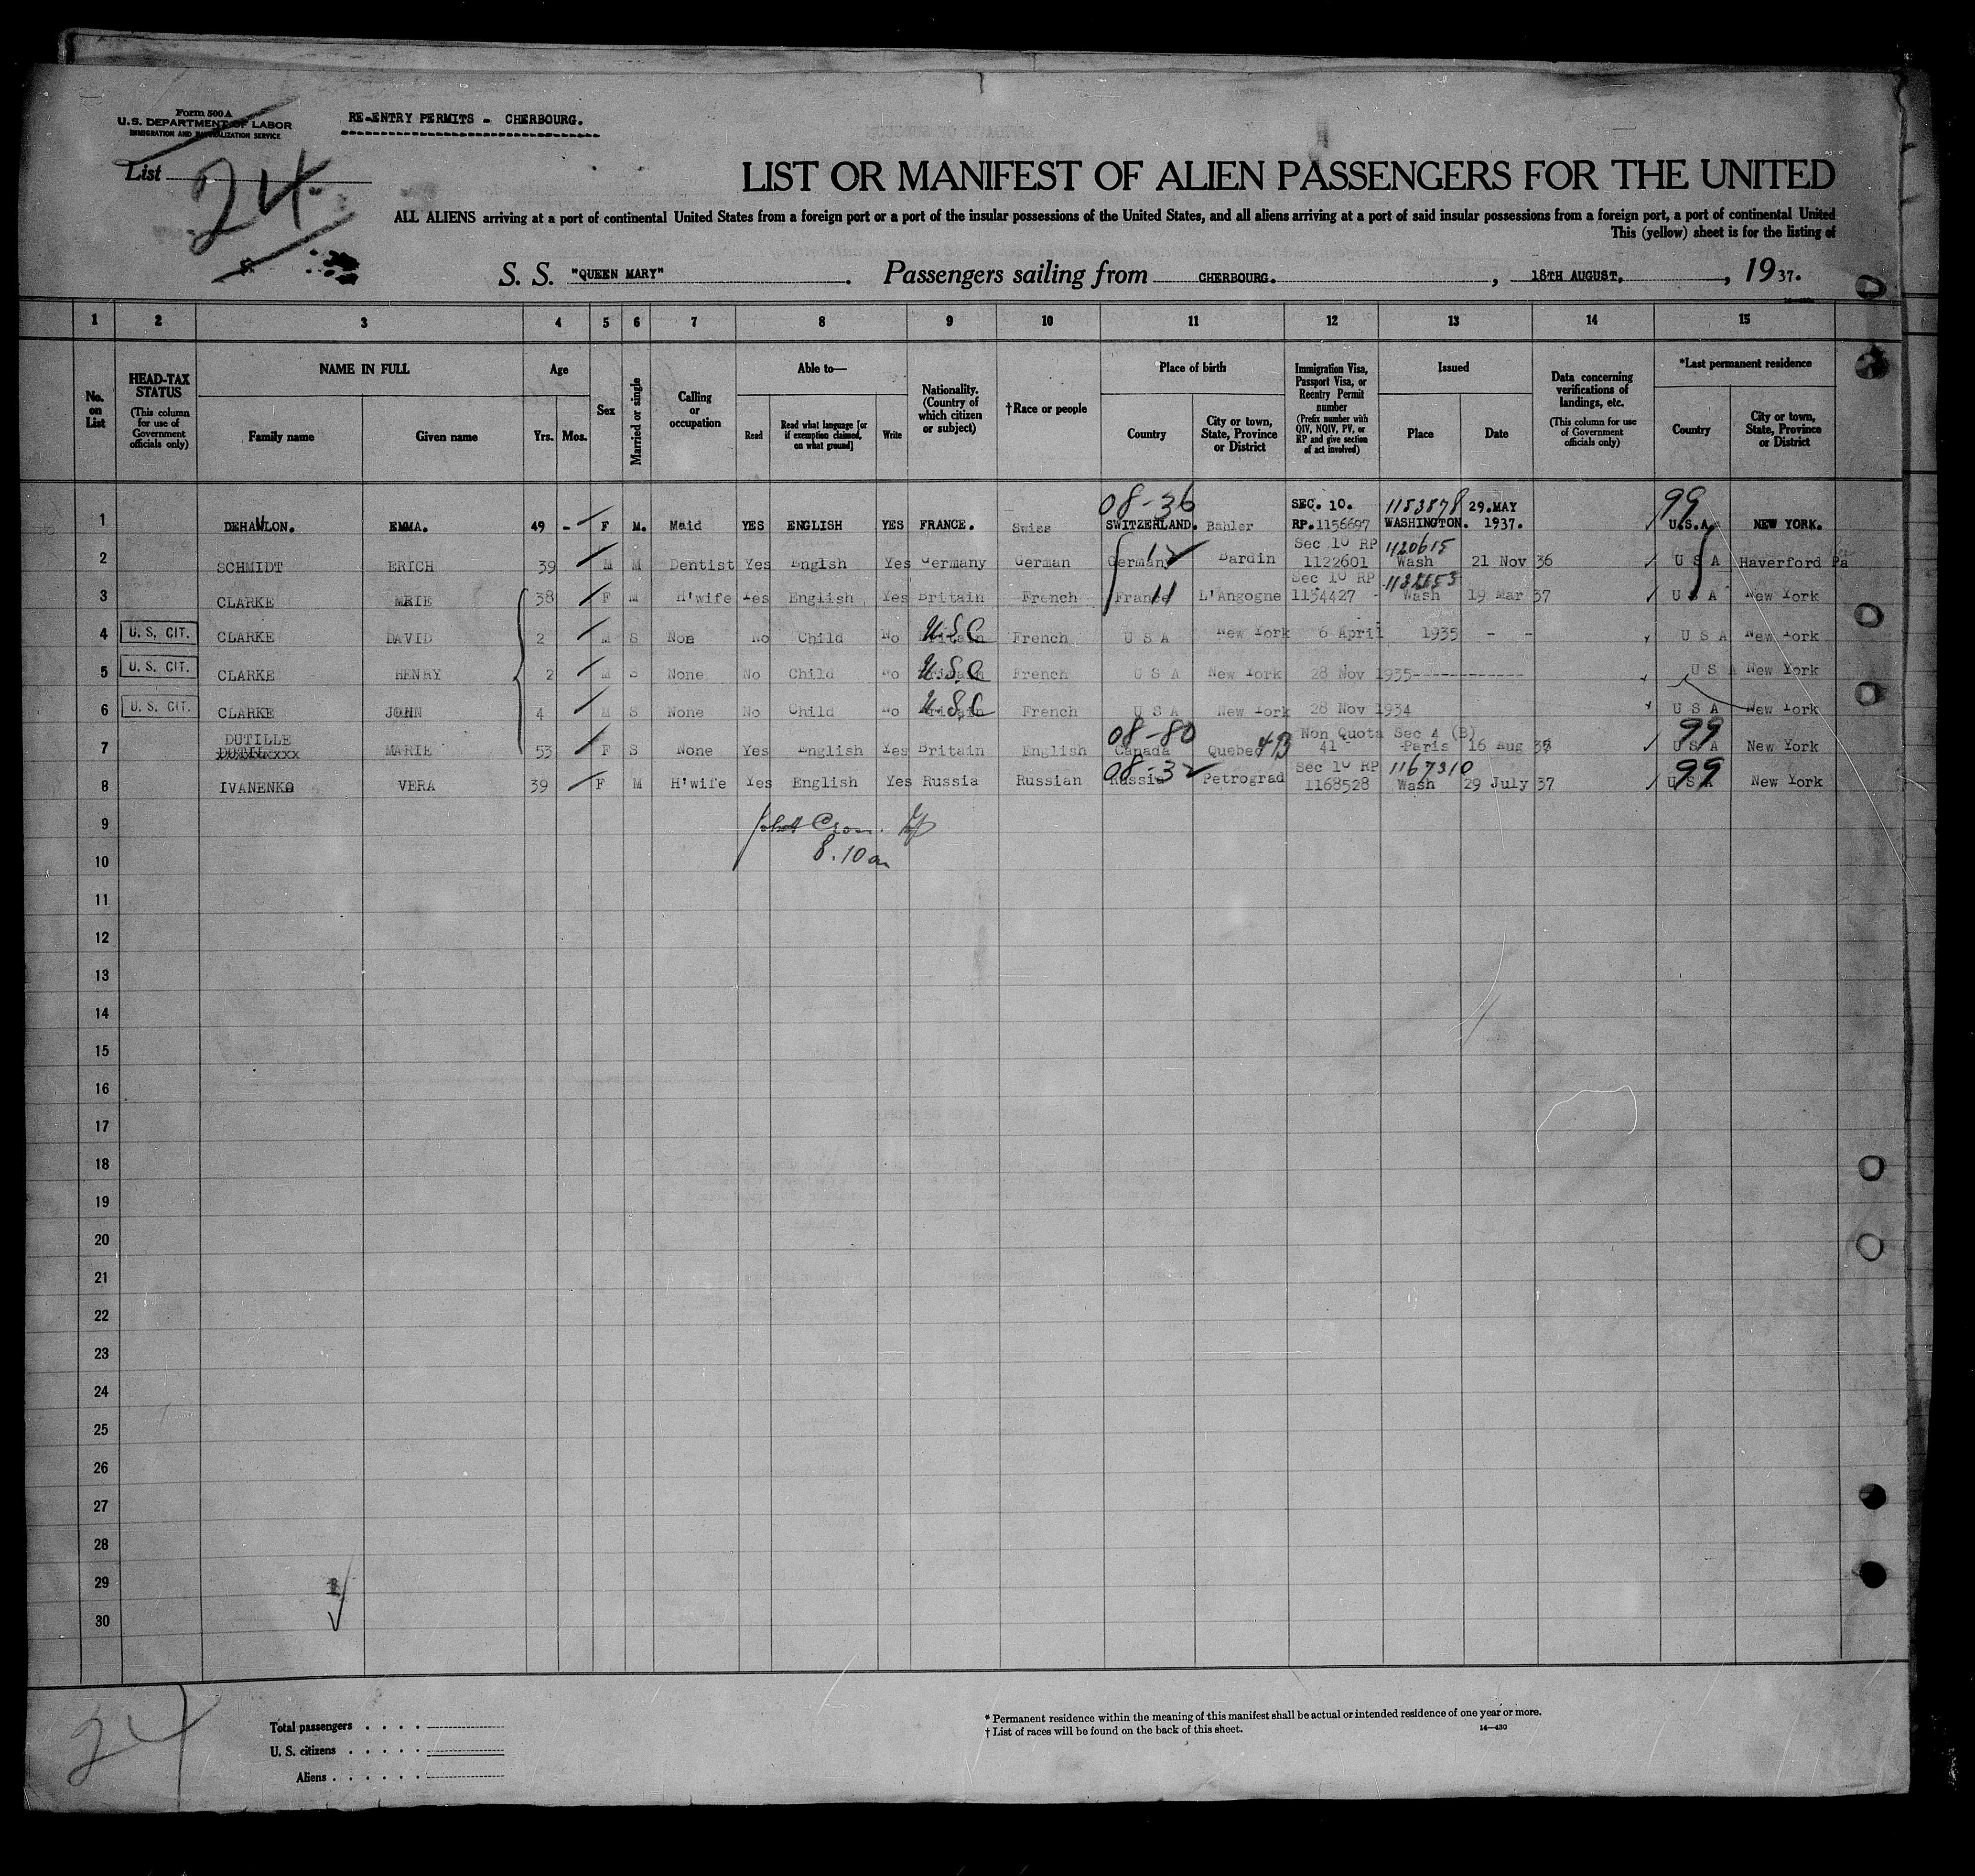 Form 500 A
U.S. DEPARTMENT OF LABOR
IMMIGRATION AND NATURALIZATION SERVICE
RE-ENTRY PERMITS - CHERBOURG.
List 24
LIST OR MANIFEST OF ALIEN PASSENGERS FOR THE UNITED
ALL ALIENS arriving at a port of continental United States from a foreign port or a port of the insular possessions of the United States, and all aliens arriving at a port of said insular possessions from a foreign port, a port of continental United
This (yellow) sheet is for the listing of
S. S. "QUEEN MARY" . Passengers sailing from CHERBOURG. , 18TH AUGUST, , 1937.
1 2 3 4 5 6 7 8 9 10 11 12 13 14 15
No. on List
HEAD-TAX STATUS
(This column for use of Government officials only)
NAME IN FULL
Family name Given name
Age
Yrs. Mos.
Sex
Married or single
Calling or occupation
Able to—
Read
Read what language [or if exemption claimed, on what ground]
Write
Nationality. (Country of which citizen or subject)
† Race or people
Place of birth
Country
City or town, State, Province or District
Immigration Visa, Passport Visa, or Reentry Permit number
(Prefix number with QIV, NQIV, PV, or RP and give section of act involved)
Issued
Place Date
Data concerning verifications of landings, etc.
(This column for use of Government officials only)
*Last permanent residence
Country
City or town, State, Province or District
08-36 SEC. 10. 1153878 29.MAY 99
1 DEHANLON. EMMA. 49 - F M. Maid YES ENGLISH YES FRANCE. Swiss SWITZERLAND. Bahler RP.1156697 WASHINGTON. 1937. U.S.A. NEW YORK.
Sec 10 RP 1120615
2 SCHMIDT ERICH 39 M M Dentist Yes Engish Yes Germany German Germany 12 Bardin 1122601 Wash 21 Nov 36 U S A Haverford Pa
Sec 10 RP
3 CLARKE MARIE 38 F M H'wife Yes English Yes Britain French France 11 L'Angogne 1154427 - Wash 19 Mar 37 U S A New York
4 U. S. CIT. CLARKE DAVID 2 M S Non No Child No U.S.C French U S A New York 6 April 1935 - - U S A New York
5 U. S. CIT. CLARKE HENRY 2 M S None No Child No U.S.C French U S A New York 28 Nov 1935------------ U S A New York
6 U. S. CIT. CLARKE JOHN 4 M S None No Child No U.S.C French U S A New York 28 Nov 1934 U S A New York
DUTILLE 08-80 Non Quota Sec 4 (B) 99
7 MARIE 53 F S None Yes English Yes Britain English Canada Quebec 4B 41 - Paris 16 Aug U S A New York
08-32 Sec 10 RP 1167310 99
8 IVANENKO VERA 39 F M H'wife Yes English Yes Russia Russian Russia Petrograd 1168528 Wash 29 July 37 U S A New York
9
10 8.10 am
11
12
13
14
15
16
17
18
19
20
21
22
23
24
25
26
27
28
29
30
24
Total passengers . . . .
U. S. citizens . . . . .
Aliens . . . . . .
* Permanent residence within the meaning of this manifest shall be actual or intended residence of one year or more.
† List of races will be found on the back of this sheet.
14—430